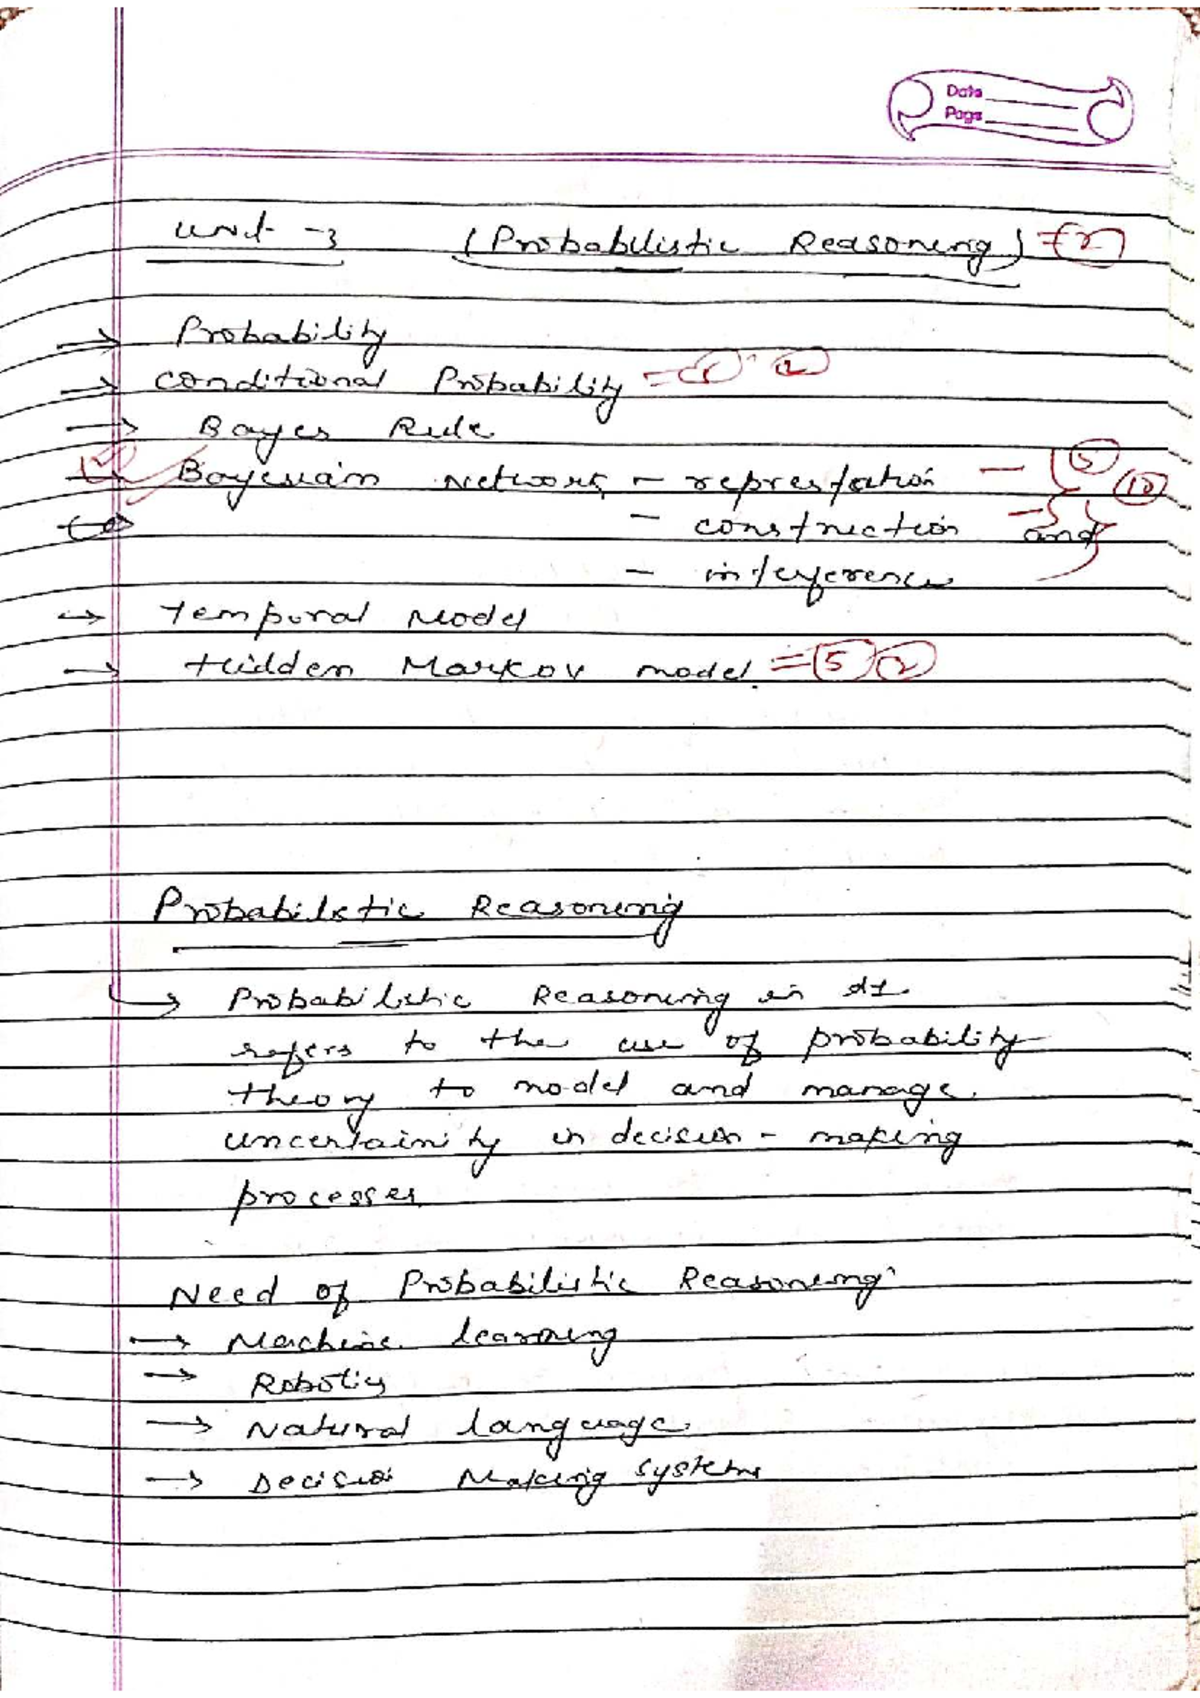 Date
Page
Unit-3 (Probabilistic Reasoning) = (2)
→ Probability
→ Conditional Probability = (2)
→ Bayes Rule
Bayesian Network - represtation - (5) (10)
- construction and
- interference
→ Temporal Model
→ Hidden Markov model. = (5) (2)
Probabilistic Reasoning
→ Probabilistic Reasoning in AI
refers to the use of probability
theory to model and manage
uncertainity in decision - making
processes.
Need of Probabilistic Reasoning:
→ Machine learning
→ Robotics
→ Natural language.
→ Decision Making systems